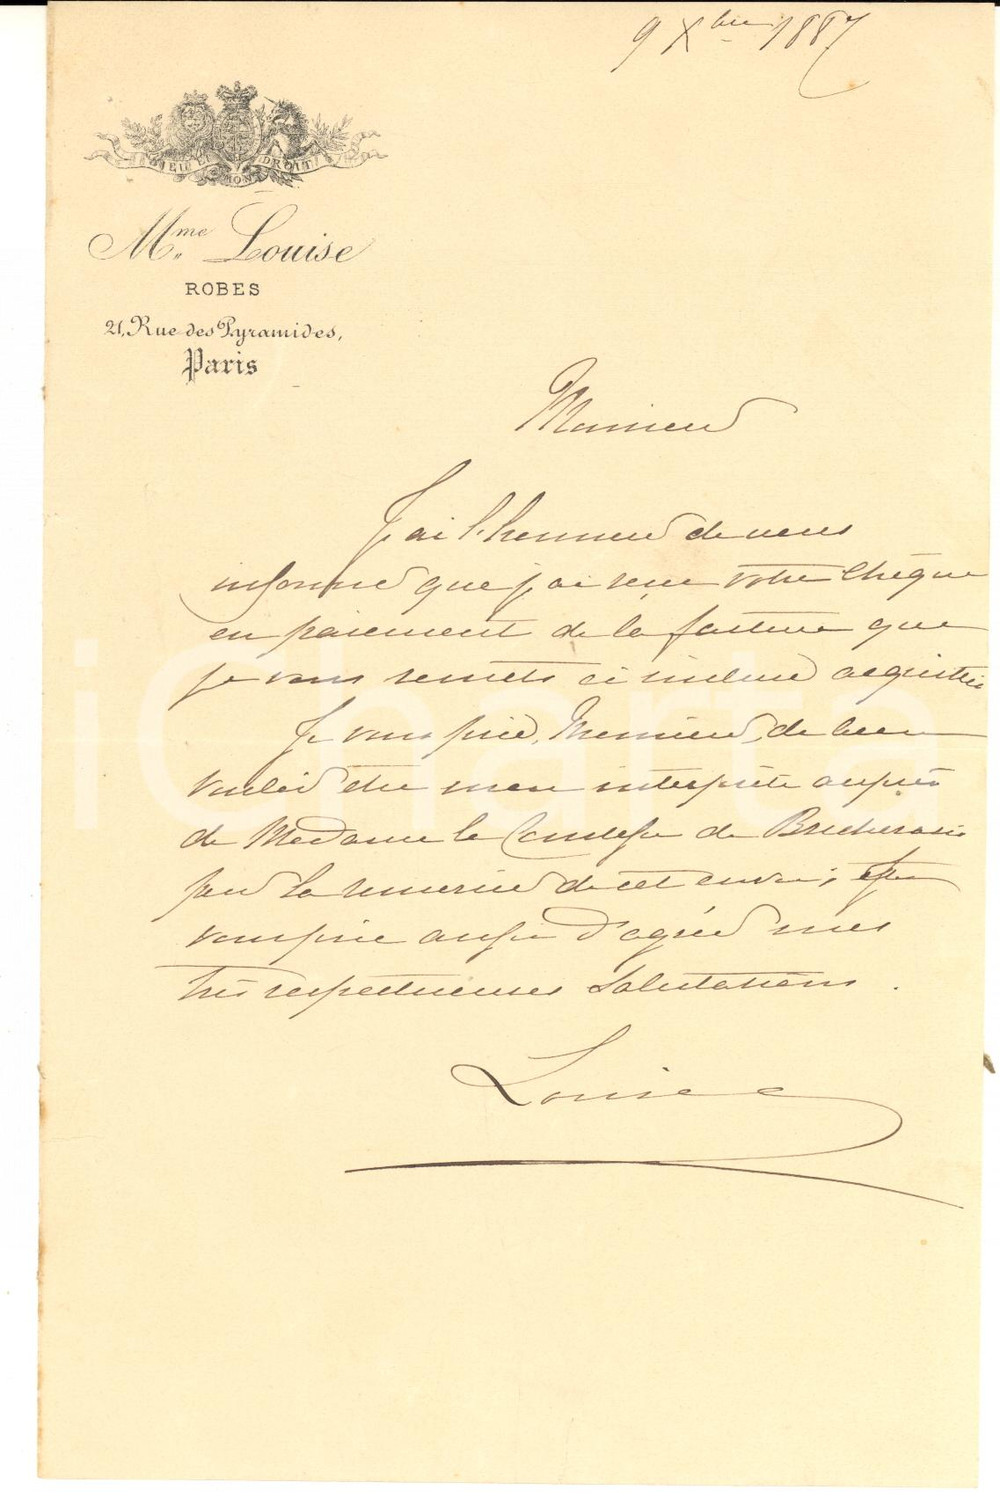 9 Xbre 1887
DIEU ET MON DROIT
Mme Louise
ROBES
21, Rue des Pyramides,
Paris
Monsieur
J'ai l'honneur de vous
informer que j'ai reçu votre chèque
en paiement de la facture que
je vous remets ci incluse acquittée
Je vous prie, Monsieur, de bien
vouloir être mon interprète auprès
de Madame la Comtesse de
pour la remercier de cet envoi; et je
vous prie aussi d'agréer mes
très respectueuses salutations.
Louise
iCharta